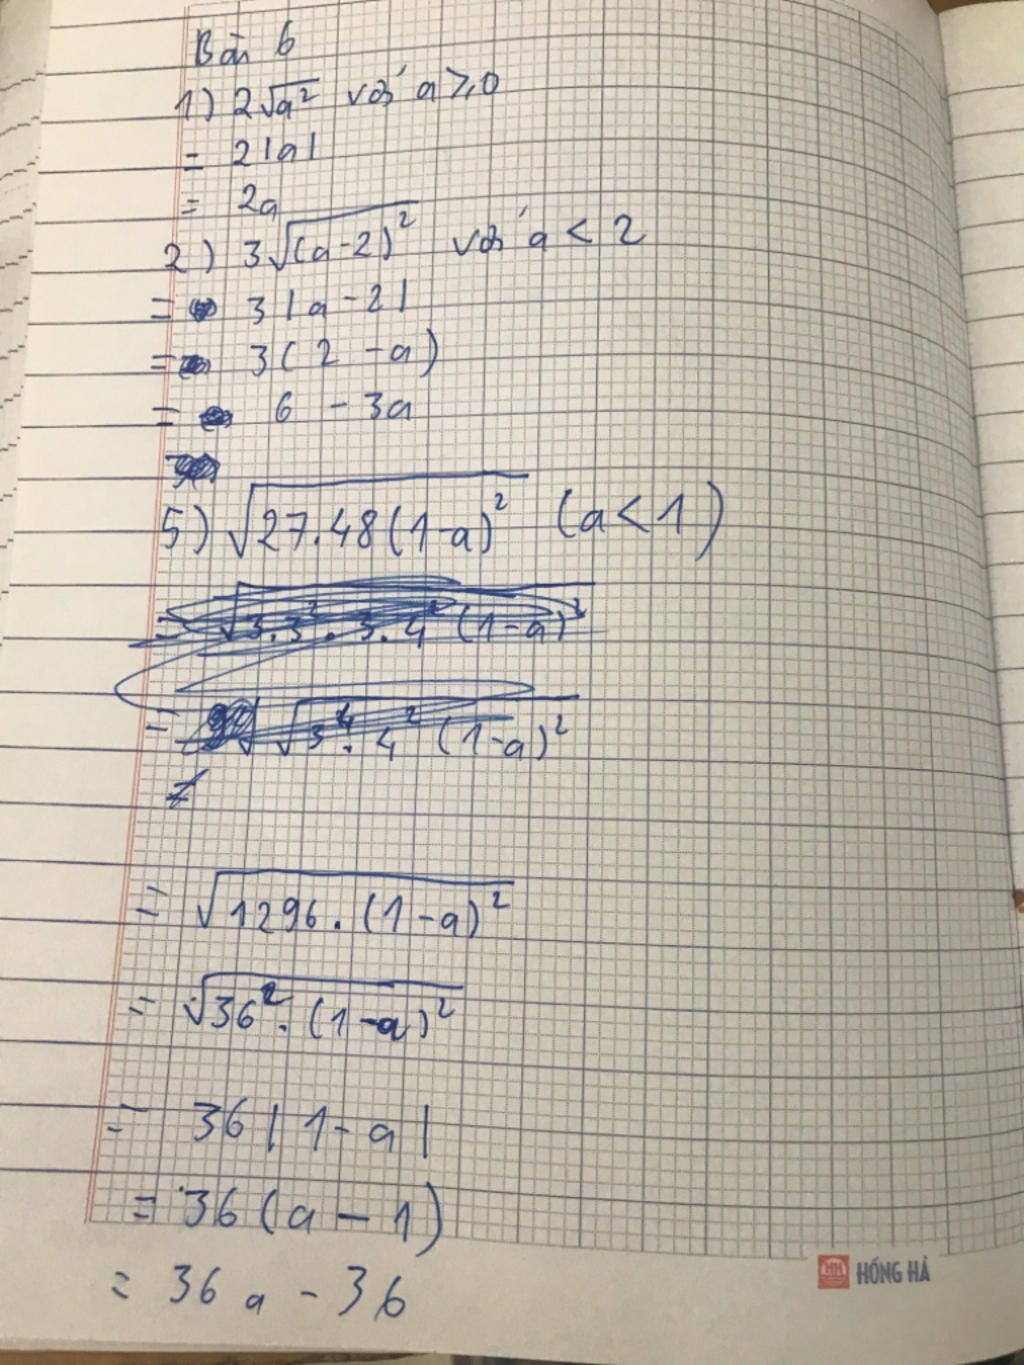 Bài 6
1) 2√a² với a ≥ 0
= 2|a|
= 2a
2) 3√(a-2)² với a < 2
= 3|a - 2|
= 3(2 - a)
= 6 - 3a
5) √27.48(1-a)² (a < 1)
= √3.3².3.4²(1-a)²
= √3⁴.4²(1-a)²
= √1296.(1-a)²
= √36².(1-a)²
= 36|1-a|
= 36(a - 1)
= 36a - 36
HH HỒNG HÀ